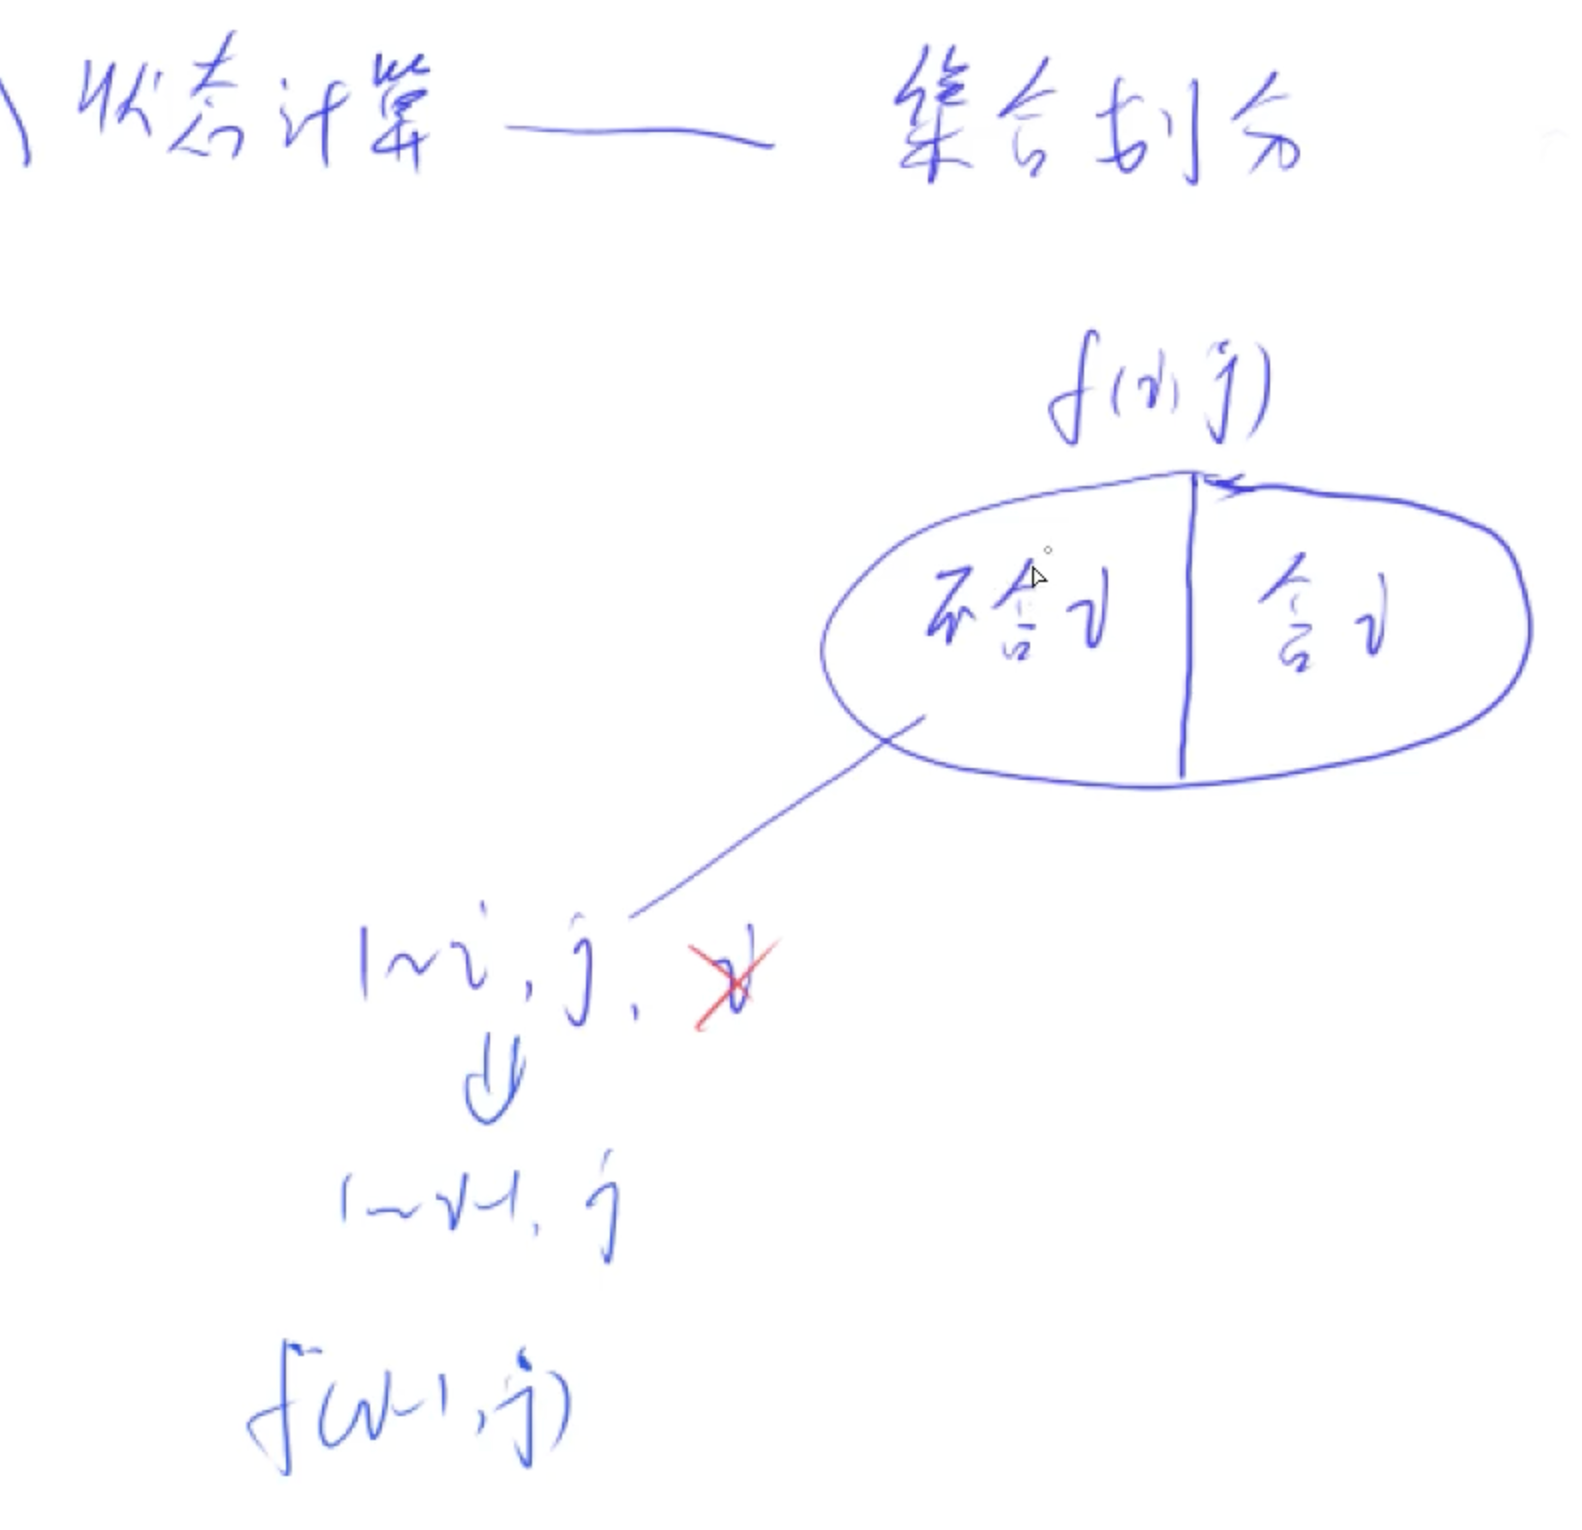 状态计算 —— 集合划分
f(i,j)
不含i 含i
1~i, j, i
1~i-1, j
f(i-1,j)